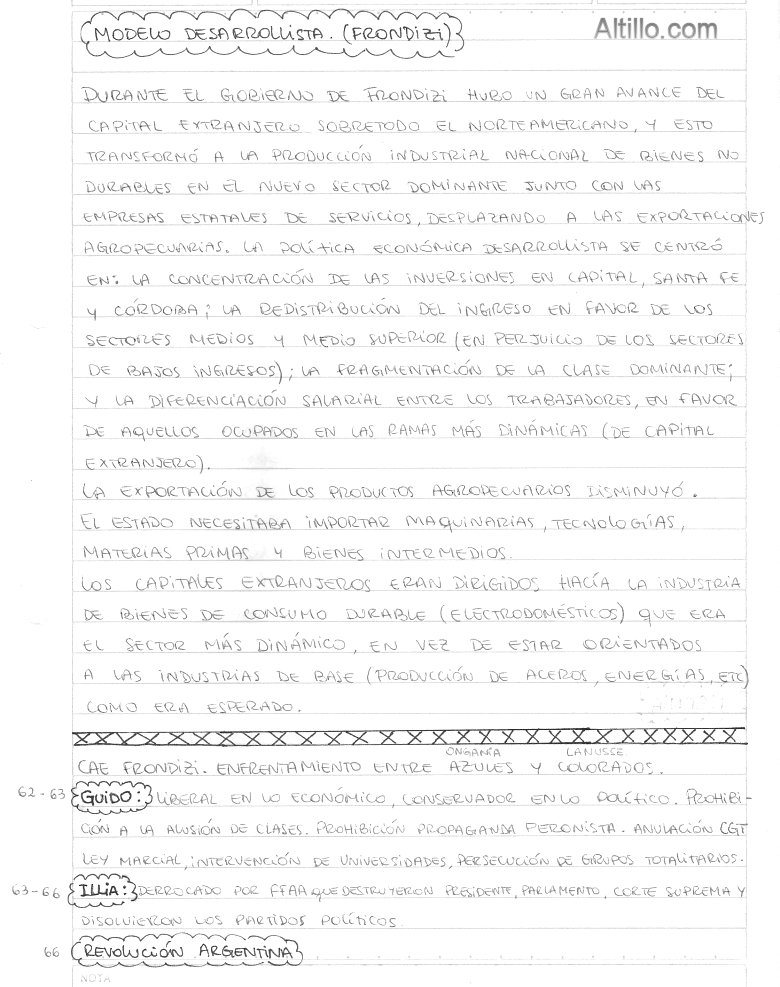 MODELO DESARROLLISTA. (FRONDIZI)
Altillo.com
DURANTE EL GOBIERNO DE FRONDIZI HUBO UN GRAN AVANCE DEL
CAPITAL EXTRANJERO SOBRETODO EL NORTEAMERICANO, Y ESTO
TRANSFORMÓ A LA PRODUCCIÓN INDUSTRIAL NACIONAL DE BIENES NO
DURABLES EN EL NUEVO SECTOR DOMINANTE JUNTO CON LAS
EMPRESAS ESTATALES DE SERVICIOS, DESPLAZANDO A LAS EXPORTACIONES
AGROPECUARIAS. LA POLÍTICA ECONÓMICA DESARROLLISTA SE CENTRÓ
EN: LA CONCENTRACIÓN DE LAS INVERSIONES EN CAPITAL, SANTA FE
Y CÓRDOBA; LA REDISTRIBUCIÓN DEL INGRESO EN FAVOR DE LOS
SECTORES MEDIOS Y MEDIO SUPERIOR (EN PERJUICIO DE LOS SECTORES
DE BAJOS INGRESOS); LA FRAGMENTACIÓN DE LA CLASE DOMINANTE;
Y LA DIFERENCIACIÓN SALARIAL ENTRE LOS TRABAJADORES, EN FAVOR
DE AQUELLOS OCUPADOS EN LAS RAMAS MÁS DINÁMICAS (DE CAPITAL
EXTRANJERO).
LA EXPORTACIÓN DE LOS PRODUCTOS AGROPECUARIOS DISMINUYÓ.
EL ESTADO NECESITABA IMPORTAR MAQUINARIAS, TECNOLOGÍAS,
MATERIAS PRIMAS Y BIENES INTERMEDIOS.
LOS CAPITALES EXTRANJEROS ERAN DIRIGIDOS HACÍA LA INDUSTRIA
DE BIENES DE CONSUMO DURABLE (ELECTRODOMÉSTICOS) QUE ERA
EL SECTOR MÁS DINÁMICO, EN VEZ DE ESTAR ORIENTADOS
A LAS INDUSTRIAS DE BASE (PRODUCCIÓN DE ACEROS, ENERGÍAS, ETC)
COMO ERA ESPERADO.
ONGANÍA LANUSSE
CAE FRONDIZI. ENFRENTAMIENTO ENTRE AZULES Y COLORADOS.
62-63 GUIDO: LIBERAL EN LO ECONÓMICO, CONSERVADOR EN LO POLÍTICO. PROHIBI-
CIÓN A LA ALUSIÓN DE CLASES. PROHIBICIÓN PROPAGANDA PERONISTA. ANULACIÓN CGT
LEY MARCIAL, INTERVENCIÓN DE UNIVERSIDADES, PERSECUCIÓN DE GRUPOS TOTALITARIOS.
63-66 ILLIA: DERROCADO POR FFAA QUE DESTRUYERON PRESIDENTE, PARLAMENTO, CORTE SUPREMA Y
DISOLVIERON LOS PARTIDOS POLÍTICOS.
66 REVOLUCIÓN ARGENTINA
NOTA